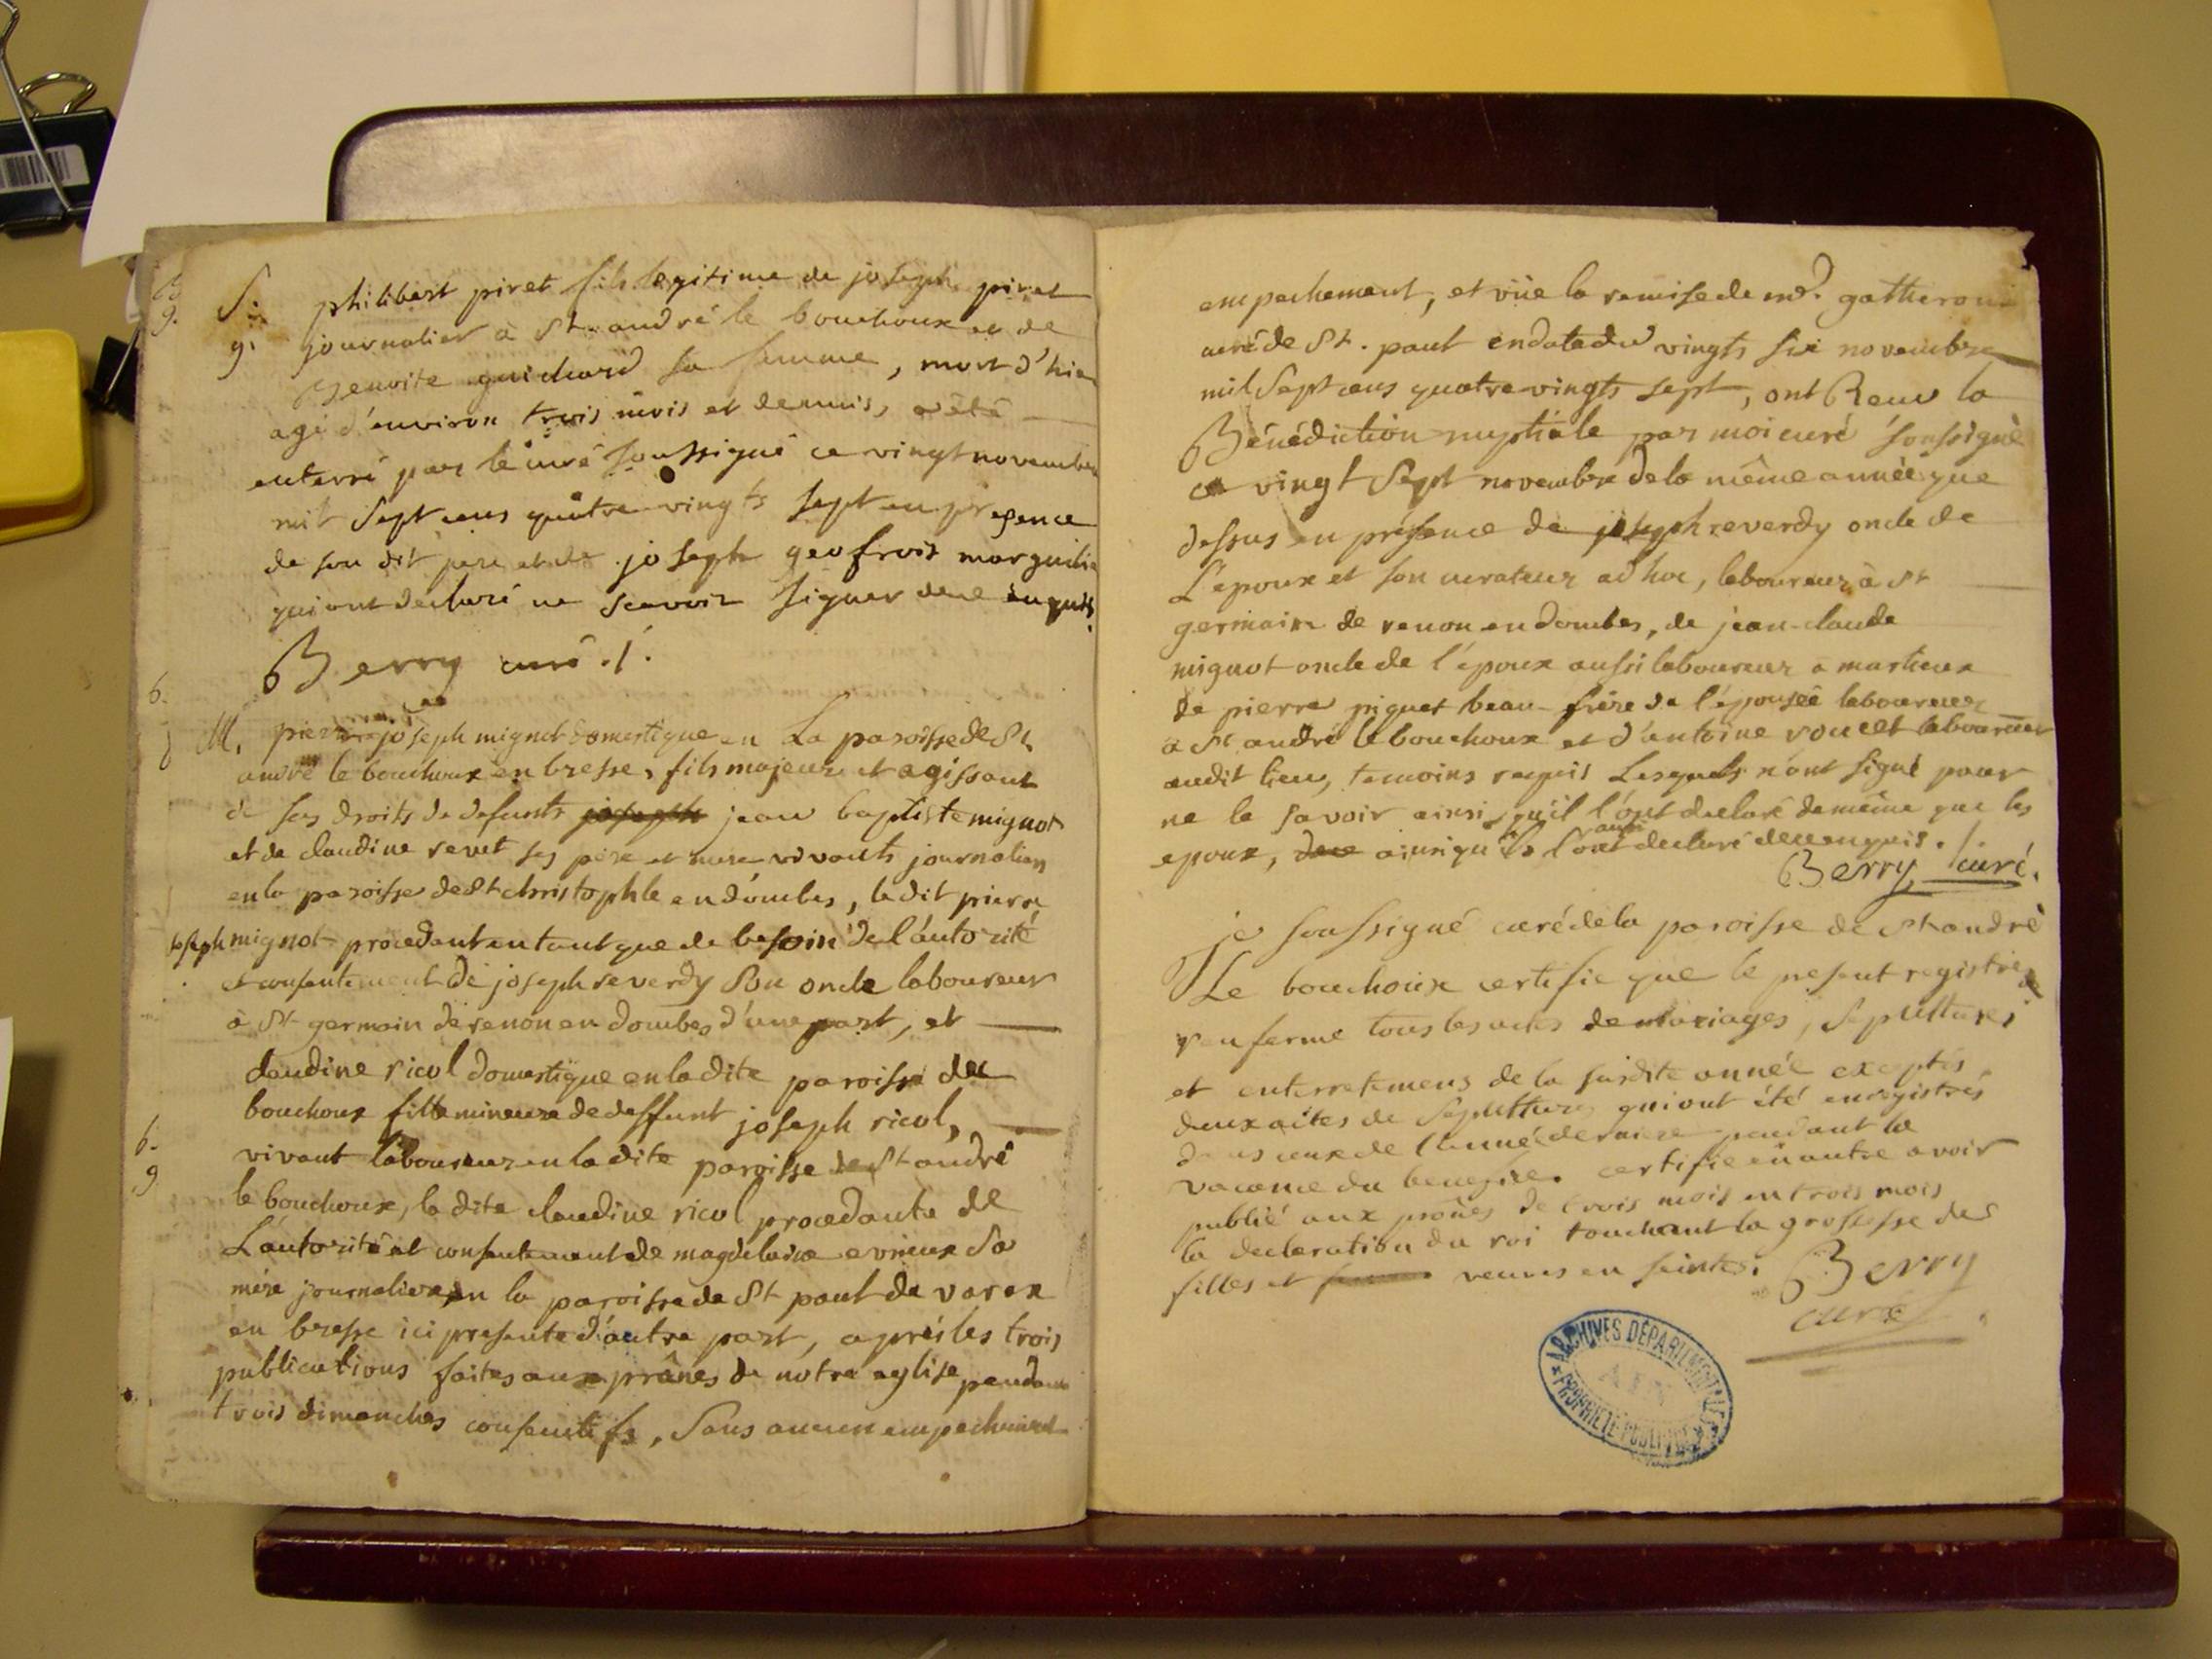 S. philibert piret fils legitime de joseph piret
g. journalier à St andré le bouchoux et de
Benoite guichard sa femme, mort d'hier
agé d'environ trois mois et demis, a été
enterré par le curé soussigné ce vingt novembre
mil Sept cens quatre vingts sept en presence
de son dit pere et de joseph geofroit marguilier
qui ont declaré ne scavoir signer de ce enquis.
Berry curé ./.
M. pierre joseph mignot domestique en La paroisse de St
andré le bouchoux en bresse, fils majeur et agissant
de ses droits de defunts joseph jean baptiste mignot
et de claudine revet ses pere et mere vivants journaliers
en la paroisse de St christophle en dombes, le dit pierre
joseph mignot procedant en tant que de besoin de l'autorité
et consentement de joseph reverdy Son oncle laboureur
à St germain de renon en dombes d'une part, et
claudine ricol domestique en la dite paroisse du
bouchoux fille mineure de deffunt joseph ricol,
vivant laboureur en la dite paroisse de St andré
le bouchoux, la dite claudine ricol procedante de
L'autorité et consentement de magdelaine evrieux Sa
mére journaliere en la paroisse de St paul de varax
en bresse ici presente d'autre part, aprés les trois
publications faites aux prônes de notre eglise pendant
trois dimanches consecutifs, Sans aucun empechement
empechement, et vüe la remise de mr. gatheron
curé de St. paul en date du vingts six novembre
mil Sept cens quatre vingts sept, ont Recu la
Bénédiction nuptiale par moi curé soussigné
ce vingt Sept novembre de la même année que
dessus en présence de joseph reverdy oncle de
L'epoux et son curateur ad hoc, laboureur à St
germain de renon en dombes, de jean-claude
mignot oncle de l'époux aussi laboureur a marlieux
de pierre piguet beau-frère de l'épousée laboureur
à St andré le bouchoux et d'antoine voucet laboureur
audit lieu, temoins requis Lesquels n'ont signé pour
ne le savoir ainsi qu'il l'ont declaré de même que les
epoux, de ce ainsi qu'ils l'ont aussi declaré de ce enquis.
Berry, curé.
je soussigné curé de la paroisse de St andré
Le bouchoux certifie que le present registre
renferme tous les actes de mariages, Sepultures
et enterremens de la susdite année exceptés
deux actes de Sepulture qui ont été enregistrés
dans ceux de l'année derniere pendant la
vacance du benefice. certifie en outre avoir
publié aux prônes de trois mois en trois mois
la declaration du roi touchant la grossesse des
filles et veuves enceintes. Berry
curé
ARCHIVES DÉPARTEMENTALES
AIN
PROPRIÉTÉ PUBLIQUE